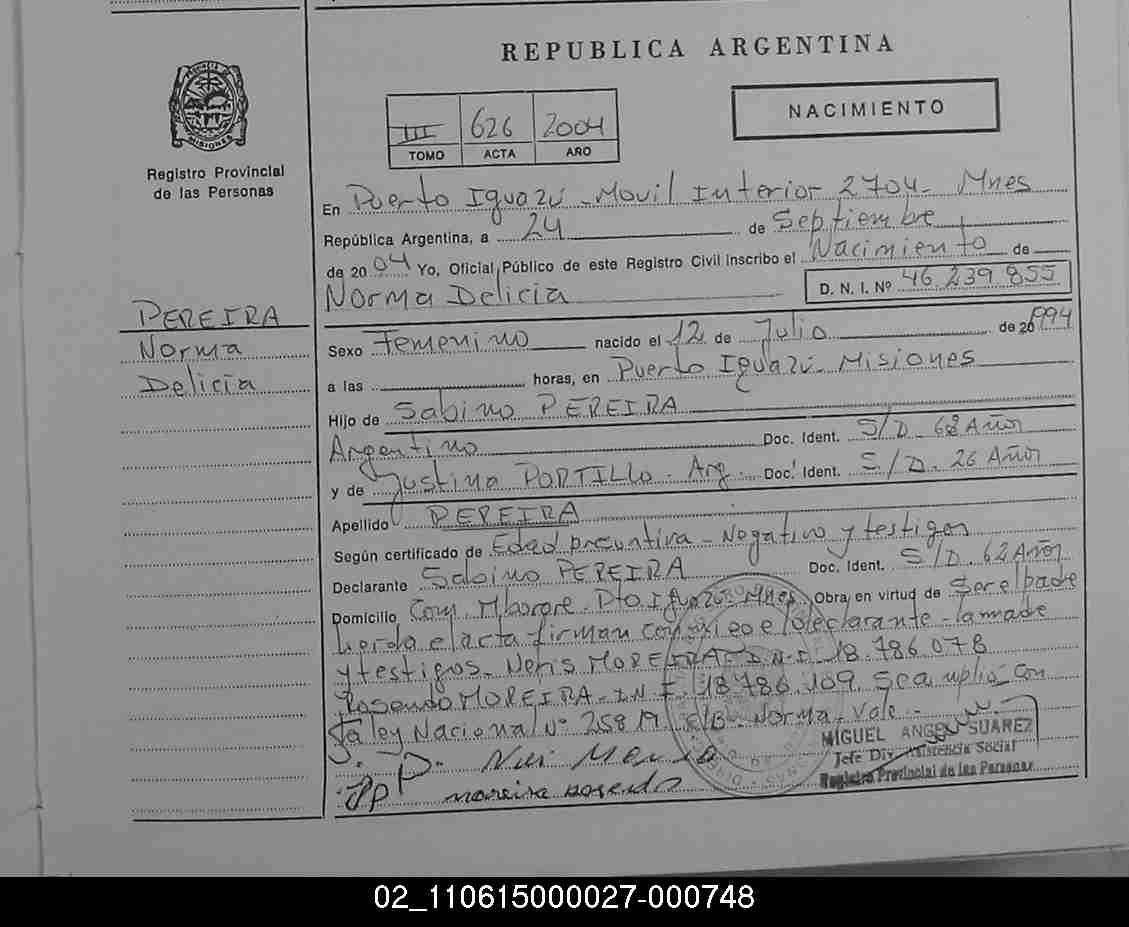 REPUBLICA ARGENTINA
PROVINCIA DE MISIONES
Registro Provincial
de las Personas
III 626 2004
TOMO ACTA AÑO
NACIMIENTO
En Puerto Iguazú - Movil Interior 2704 - Mnes
República Argentina, a 24 de Septiembre
de 2004 Yo, Oficial Público de este Registro Civil inscribo el Nacimiento de
Norma Delicia D. N. I. Nº 46.239.855
PEREIRA
Norma
Delicia
Sexo Femenino nacido el 12 de Julio de 20 1994
a las horas, en Puerto Iguazú - Misiones
Hijo de Sabino PEREIRA
Argentino Doc. Ident. S/D - 62 Años
y de Justina PORTILLO - Arg. Doc. Ident. S/D. 26 Años
Apellido PEREIRA
Según certificado de Edad presuntiva - Negativo y testigos
Declarante Sabino PEREIRA Doc. Ident. S/D. 62 Años
Domicilio Com. Mborore - Dto Iguazú Mnes. Obra en virtud de Ser el padre
Leida el acta firman el declarante - la madre
y testigos - MOREIRA - D.N.I. 18.786.078
Rosendo MOREIRA - D.N.I. 18.786.109. Se cumplió con
la ley Nacional Nº 25819. E/B - Norma - Vale -
MIGUEL ANGEL SUAREZ
Jefe Div. Asistencia Social
Registro Provincial de las Personas
moreira rosendo
02_110615000027-000748